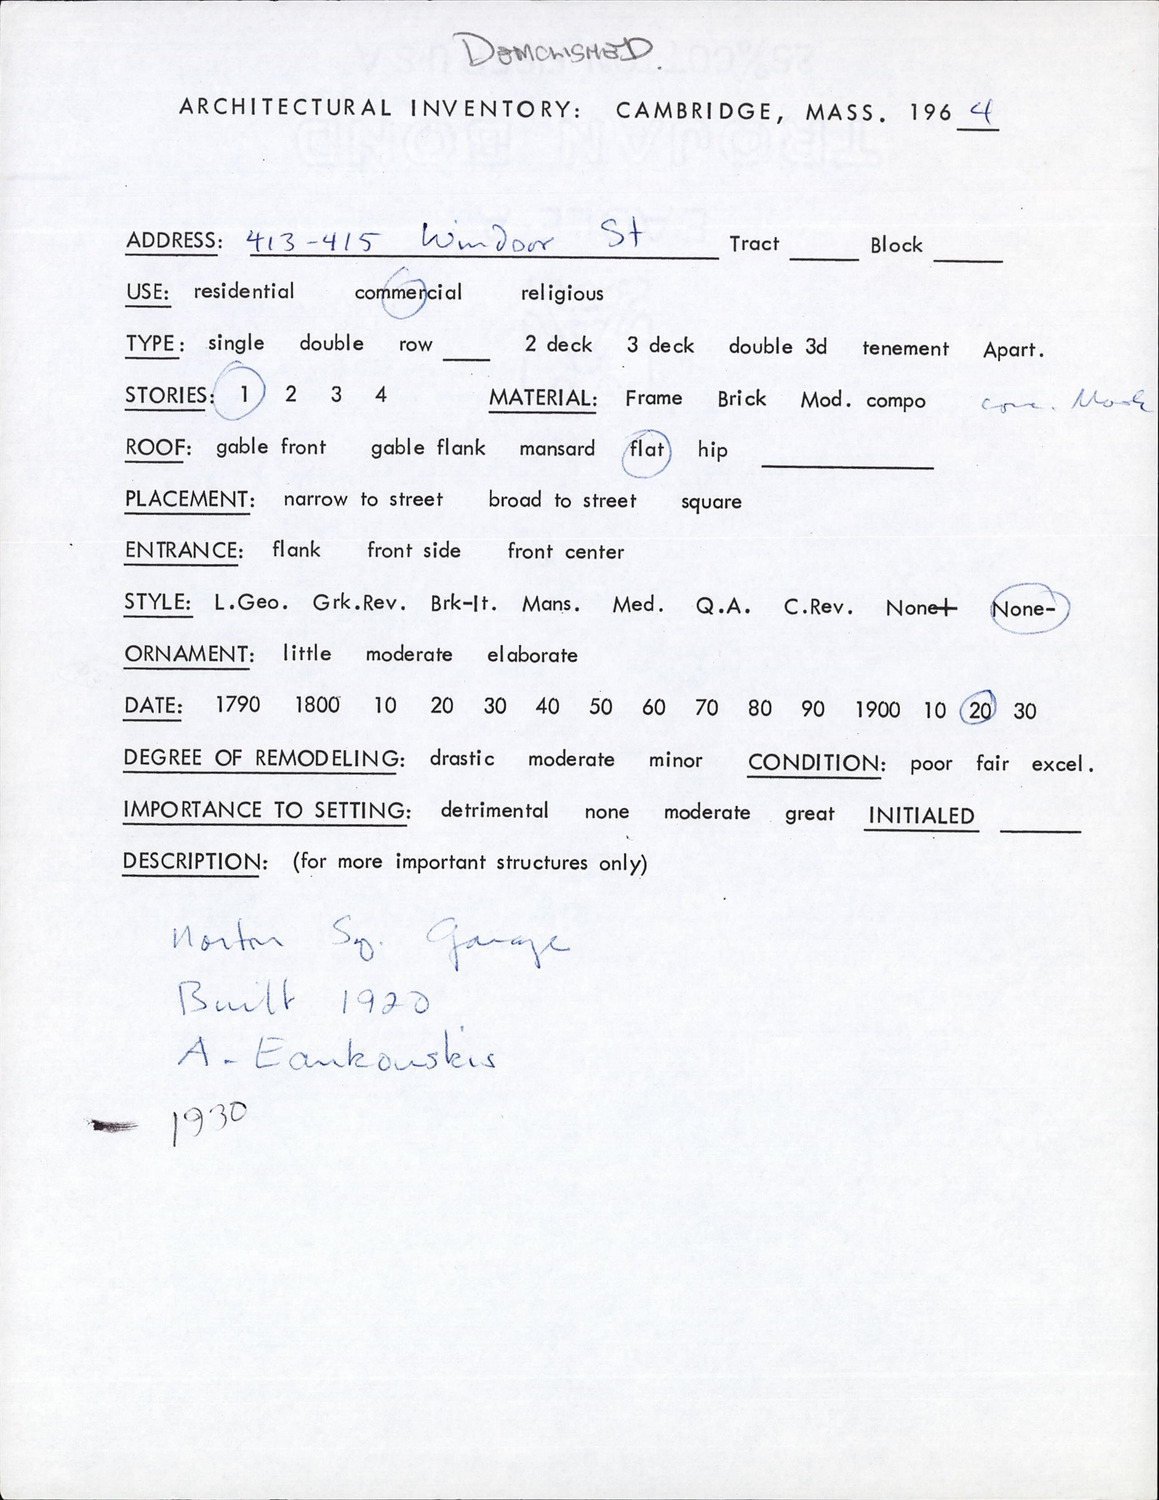 DEMOLISHED.
ARCHITECTURAL INVENTORY: CAMBRIDGE, MASS. 196 4
ADDRESS: 413-415 Windsor St Tract Block
USE: residential commercial religious
TYPE: single double row 2 deck 3 deck double 3d tenement Apart.
STORIES: 1 2 3 4 MATERIAL: Frame Brick Mod. compo
ROOF: gable front gable flank mansard flat hip
PLACEMENT: narrow to street broad to street square
ENTRANCE: flank front side front center
STYLE: L.Geo. Grk.Rev. Brk-It. Mans. Med. Q.A. C.Rev. None+ None-
ORNAMENT: little moderate elaborate
DATE: 1790 1800 10 20 30 40 50 60 70 80 90 1900 10 20 30
DEGREE OF REMODELING: drastic moderate minor CONDITION: poor fair excel.
IMPORTANCE TO SETTING: detrimental none moderate great INITIALED
DESCRIPTION: (for more important structures only)
Norton Sq. Garage
Built 1920
A.
1930